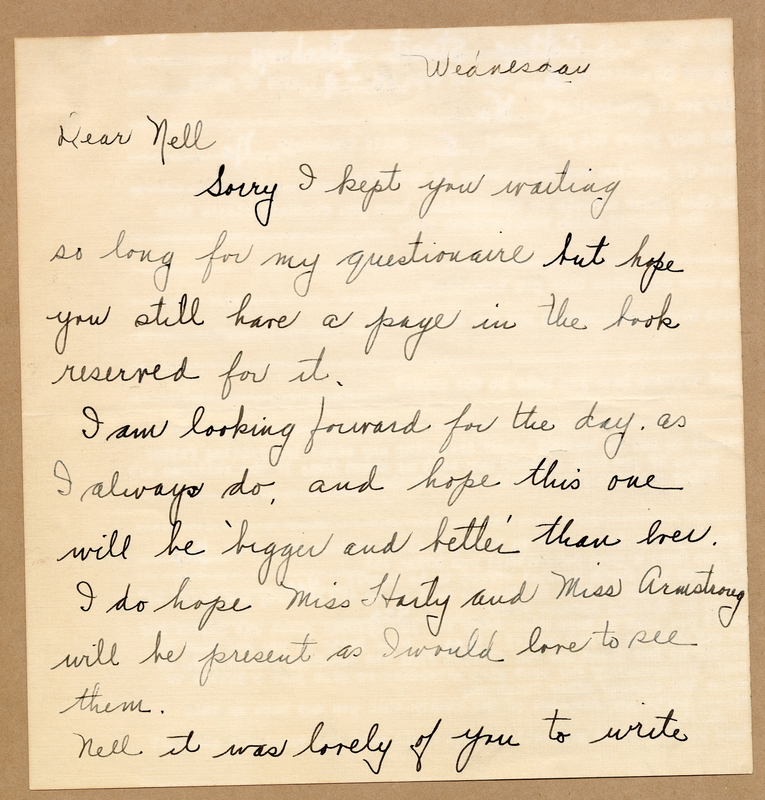 Wednesday
Dear Nell
Sorry I kept you waiting
so long for my questionaire but hope
you still have a page in the book
reserved for it.
I am looking forward for the day. as
I always do, and hope this one
will be "bigger and better" than ever.
I do hope Miss Harty and Miss Armstrong
will be present as I would love to see
them.
Nell it was lovely of you to write